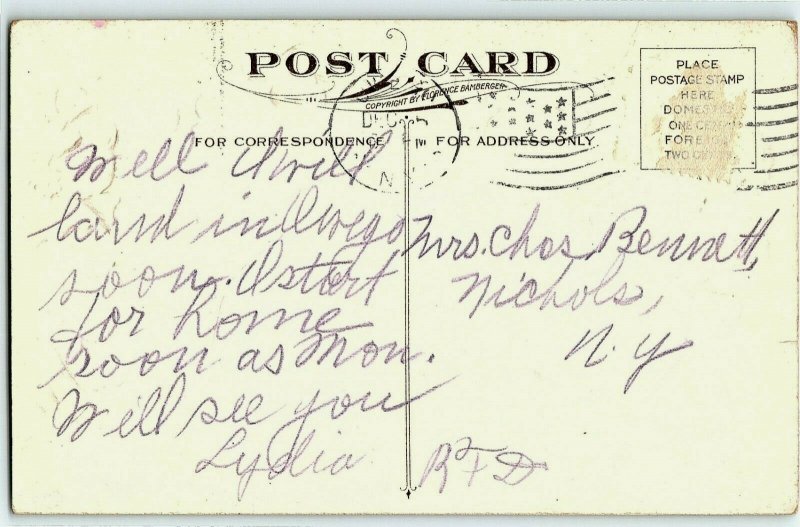 POST CARD
COPYRIGHT BY FLORENCE BAMBERGER
FOR CORRESPONDENCE
FOR ADDRESS ONLY
PLACE
POSTAGE STAMP
HERE
DOMESTIC
ONE CENT
FOREIGN
TWO CENTS.
DEC
N.Y.
Well I will
land in Owego
soon. I start
for home
soon as Mon.
Will see you
Lydia
Mrs. Chas Bennett,
Nichols,
N.Y
RFD